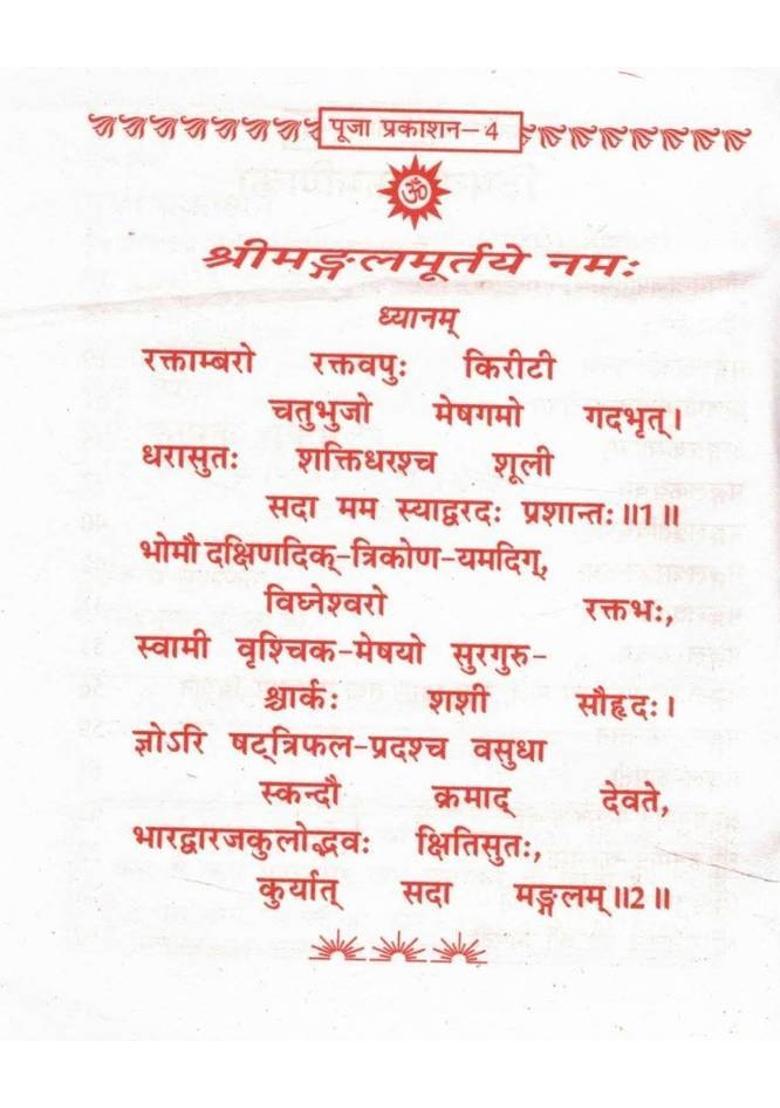 पूजा प्रकाशन-4
ॐ
श्रीमङ्गलमूर्तये नमः
ध्यानम्
रक्ताम्बरो रक्तवपुः किरीटी
चतुभुजो मेषगमो गदभृत्।
धरासुतः शक्तिधरश्च शूली
सदा मम स्याद्वरदः प्रशान्तः॥1॥
भोमौ दक्षिणदिक्-त्रिकोण-यमदिग्,
विघ्नेश्वरो रक्तभः,
स्वामी वृश्चिक-मेषयो सुरगुरु-
श्चार्कः शशी सौहृदः।
ज्ञोऽरि षट्त्रिफल-प्रदश्च वसुधा
स्कन्दौ क्रमाद् देवते,
भारद्वारजकुलोद्भवः क्षितिसुतः,
कुर्यात् सदा मङ्गलम्॥2॥